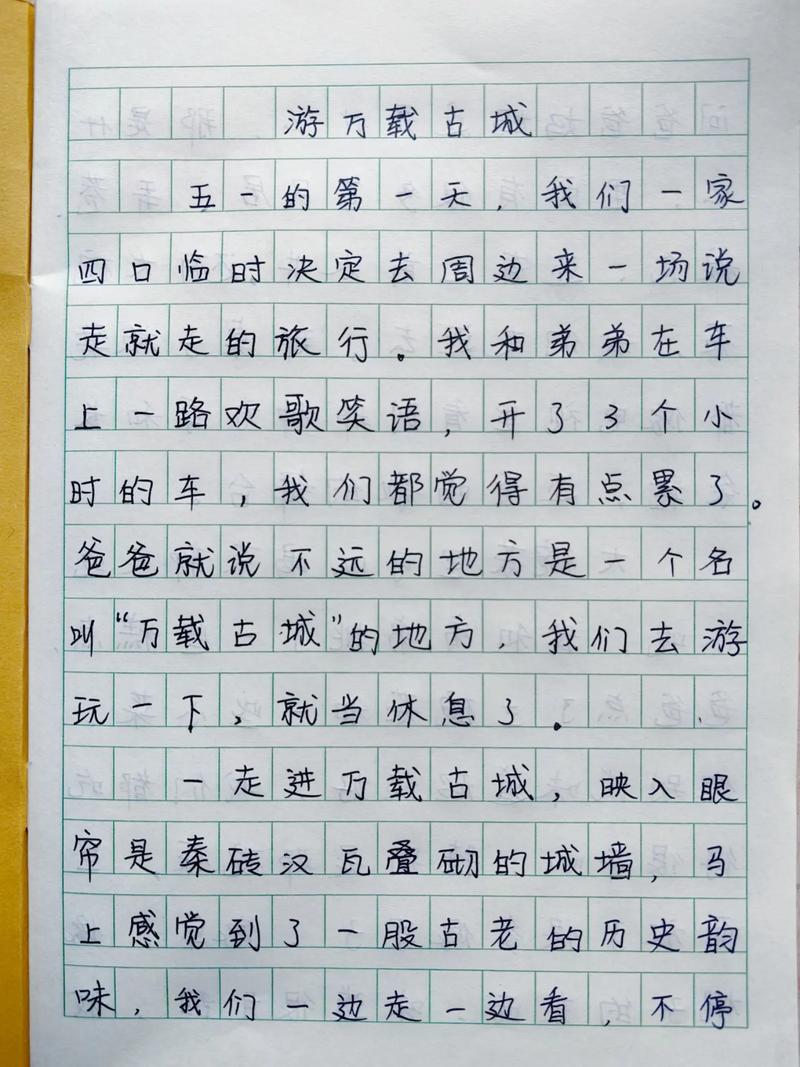 游万载古城
五一的第一天，我们一家
四口临时决定去周边来一场说
走就走的旅行。我和弟弟在车
上一路欢歌笑语，开了3个小
时的车，我们都觉得有点累了。
爸爸就说不远的地方是一个名
叫“万载古城”的地方，我们去游
玩一下，就当休息了。
一走进万载古城，映入眼
帘是秦砖汉瓦叠砌的城墙，马
上感觉到了一股古老的历史韵
味，我们一边走一边看，不停